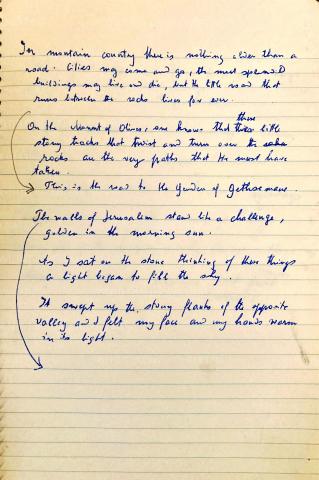 In mountain country there is nothing older than a
road. Cities may come and go, the most splendid
buildings may live and die, but the little road that
runs between the rocks lives for ever.
On the Mount of Olives, one knows that these little
stony tracks that twist and turn over the
rocks are the very paths that He must have
taken.
This is the road to the Garden of Gethsemane.
The walls of Jerusalem stand like a challenge,
golden in the morning sun.
As I sat on the stone thinking of these things
a light began to fill the sky.
It swept up the stony flanks of the opposite
valley and I felt my face and my hands warm
in its light.